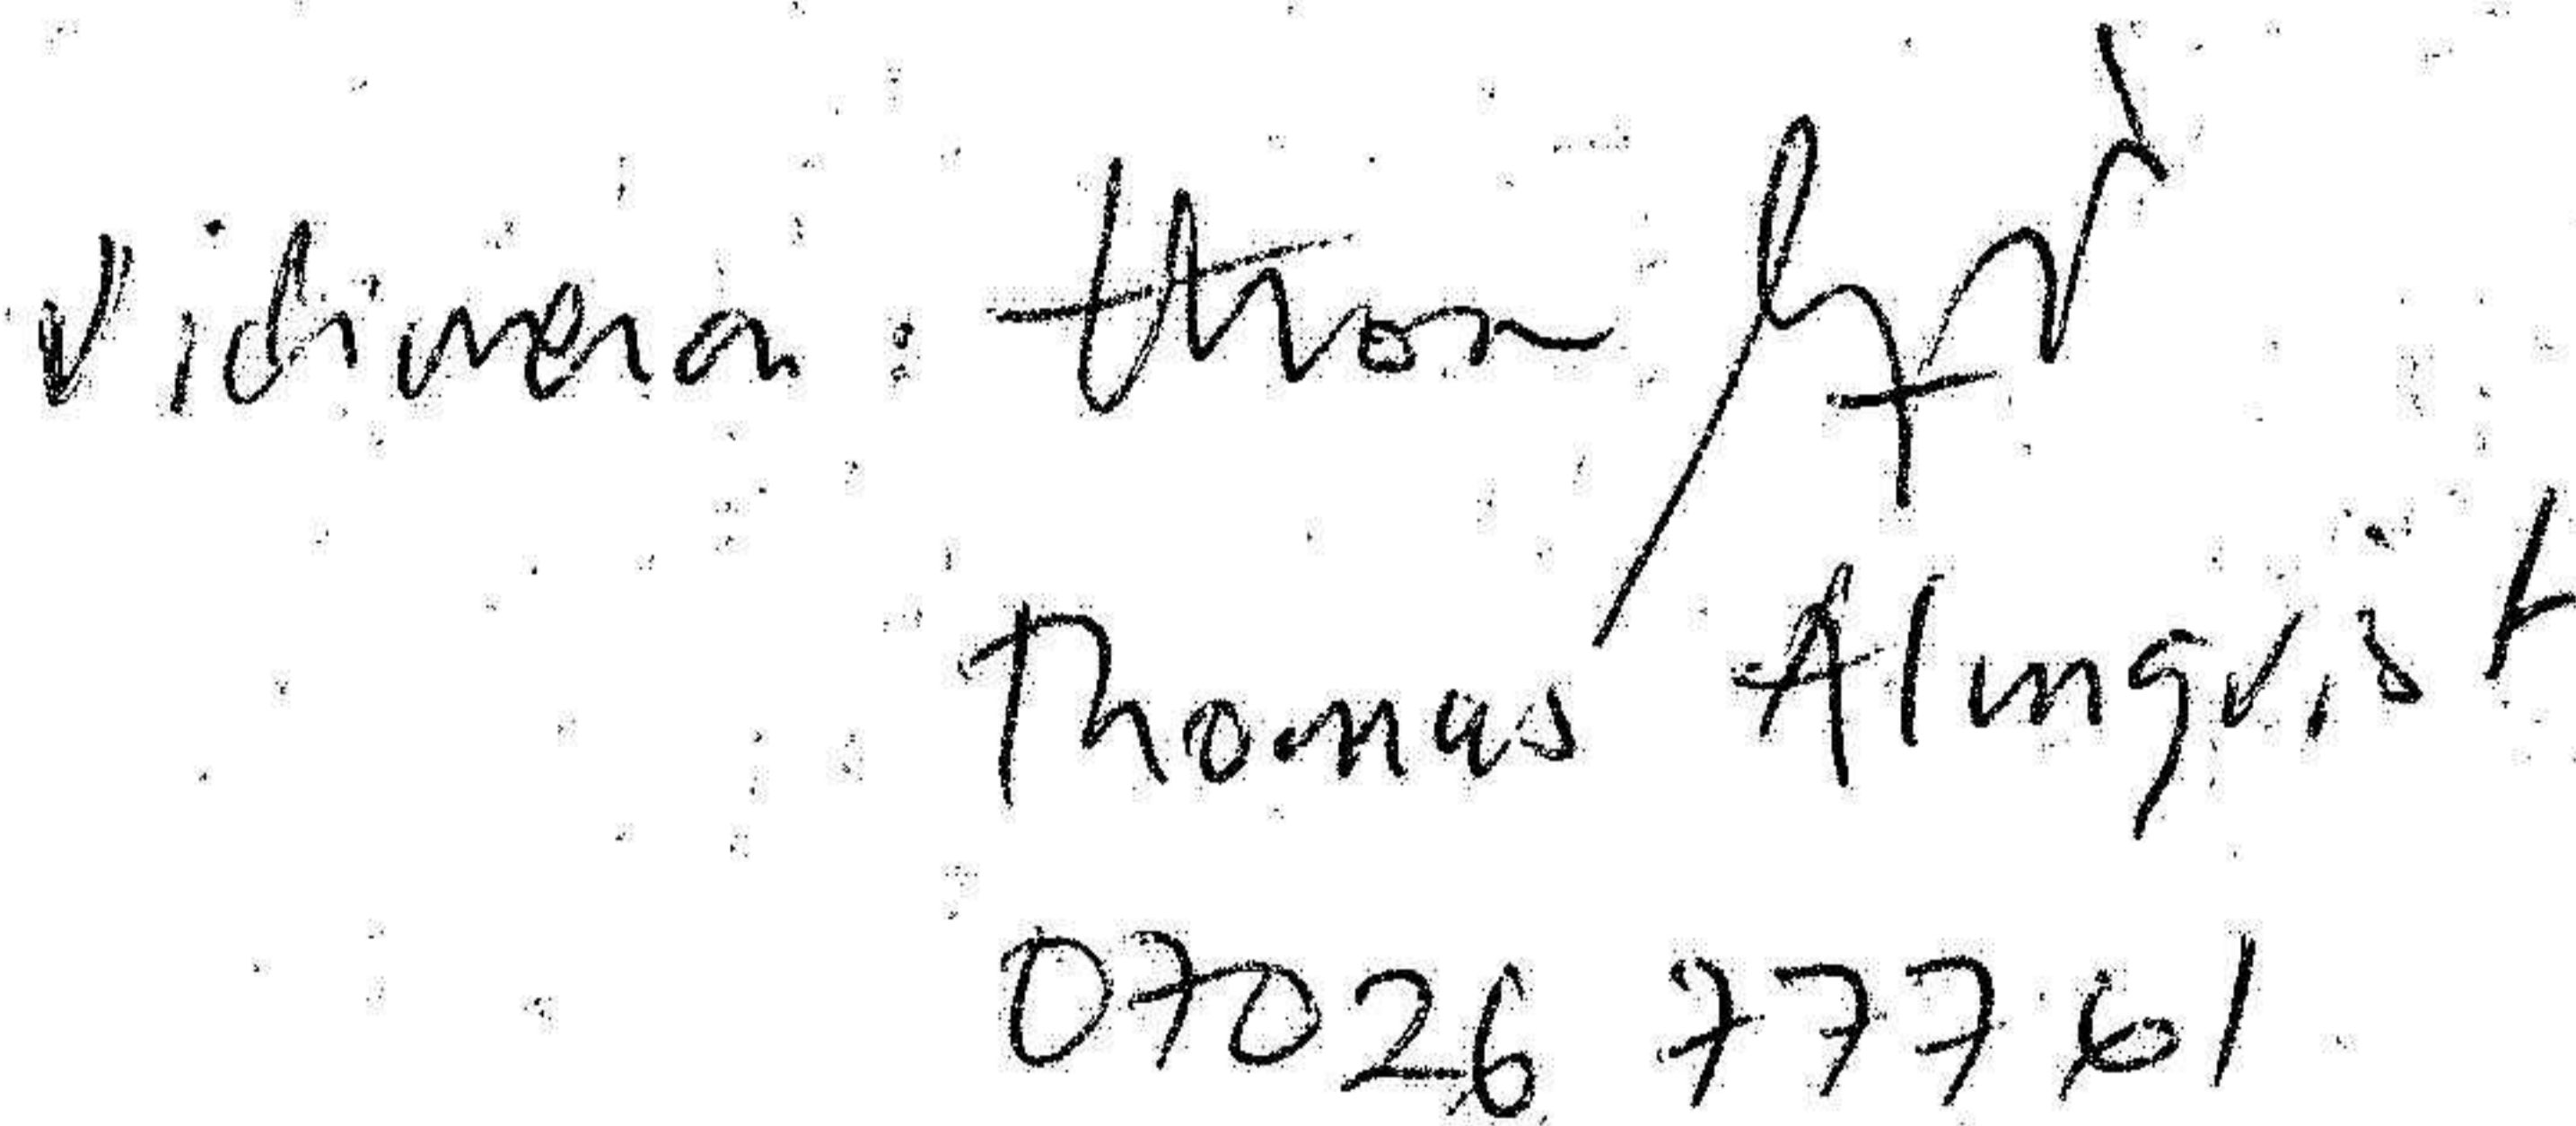 Vidimeran:
Thomas Almqvist
07026 77761